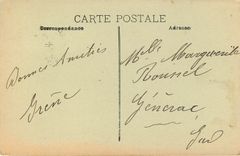 CARTE POSTALE
Correspondance
Adresse
Bonnes Amitiés
Melle Marguerite
Roussel
Générac
Gard